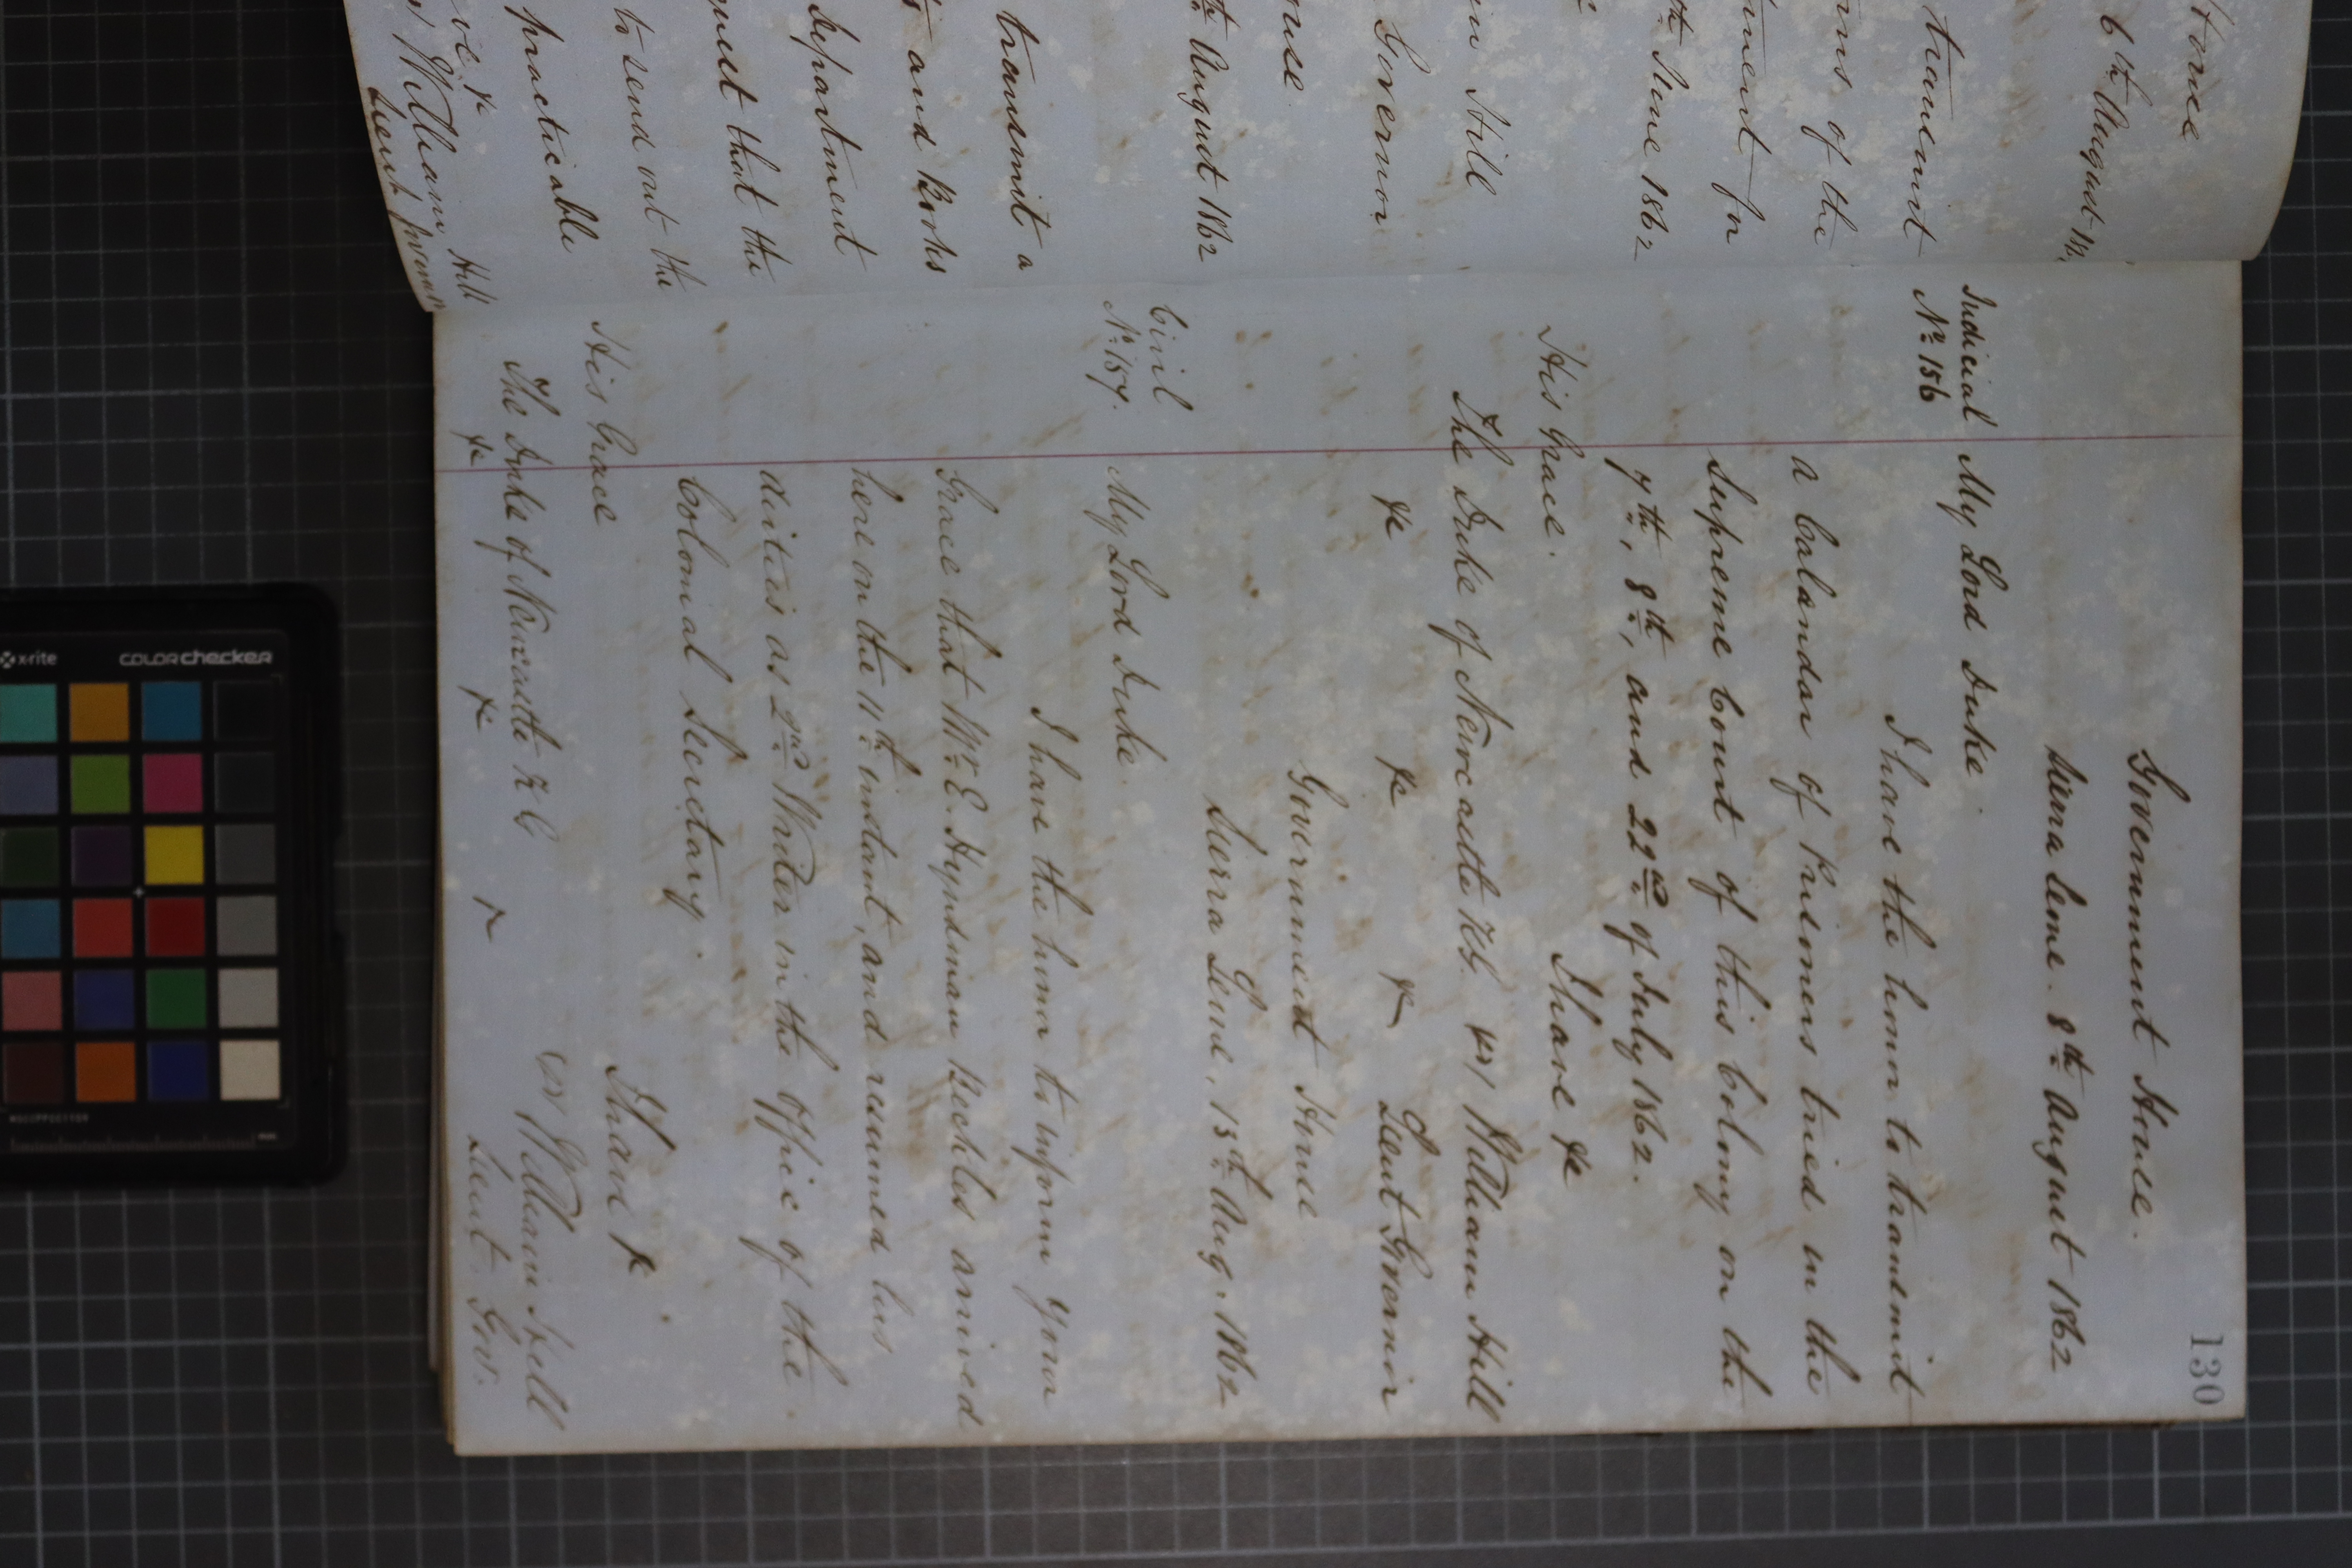 House
6th August 18
transmit
rns of the
rnment for
th June 1862
m Hill
Governor
ouse
th August 1862
transmit a
ts and Books
Department
quest that the
to send out the
practicable
ve &c
William Hill
Lieut Governor
130
Government House.
Sierra Leone. 8th August 1862
Judicial My Lord Duke.
No 156
I have the honor to transmit
a Calandar of Prisoners tried in the
Supreme Court of this Colony on the
7th, 8th, and 22nd of July 1862.
I have &c
His Grace.
The Duke of Newcastle KG. (s) William Hill
&c &c &c Lieut Governor
Government House
Sierra Leone, 15th Aug. 1862
Civil
No 157. My Lord Duke.
I have the honor to inform your
Grace that Mr E. Hyndman Beckles arrived
here on the 11th instant, and resumed his
duties as 2nd Writer in the Office of the
Colonial Secretary.
I have &c.
His Grace
The Duke of Newcastle KG (s) William Hill
&c &c &c Lieut. Gov.
x-rite colorchecker